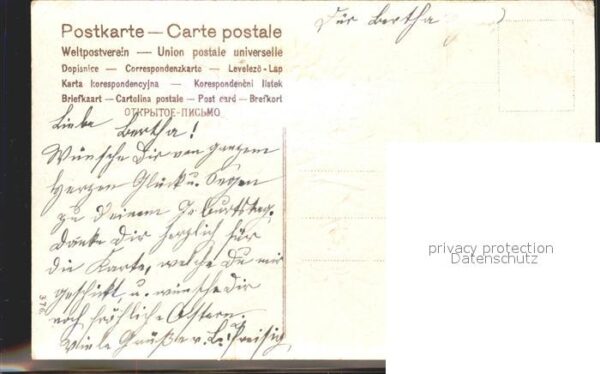 Postkarte — Carte postale
Weltpostverein — Union postale universelle
Dopisnice — Correspondenzkarte — Levelező-Lap
Karta korespondencyjna — Korespondenční lístek
Briefkaart — Cartolina postale — Post card — Brefkort
ОТКРЫТОЕ-ПИСЬМО
Für Bertha
Liebe Bertha!
Wünsche Dir von ganzem
Herzen Glück u. Segen
zu Deinem Geburtstag.
Danke Dir herzlich für
die Karte, welche Du mir
geschickt u. wünsche Dir
noch fröhliche Ostern.
Viele Grüße v. L. Preisig
376
privacy protection
Datenschutz